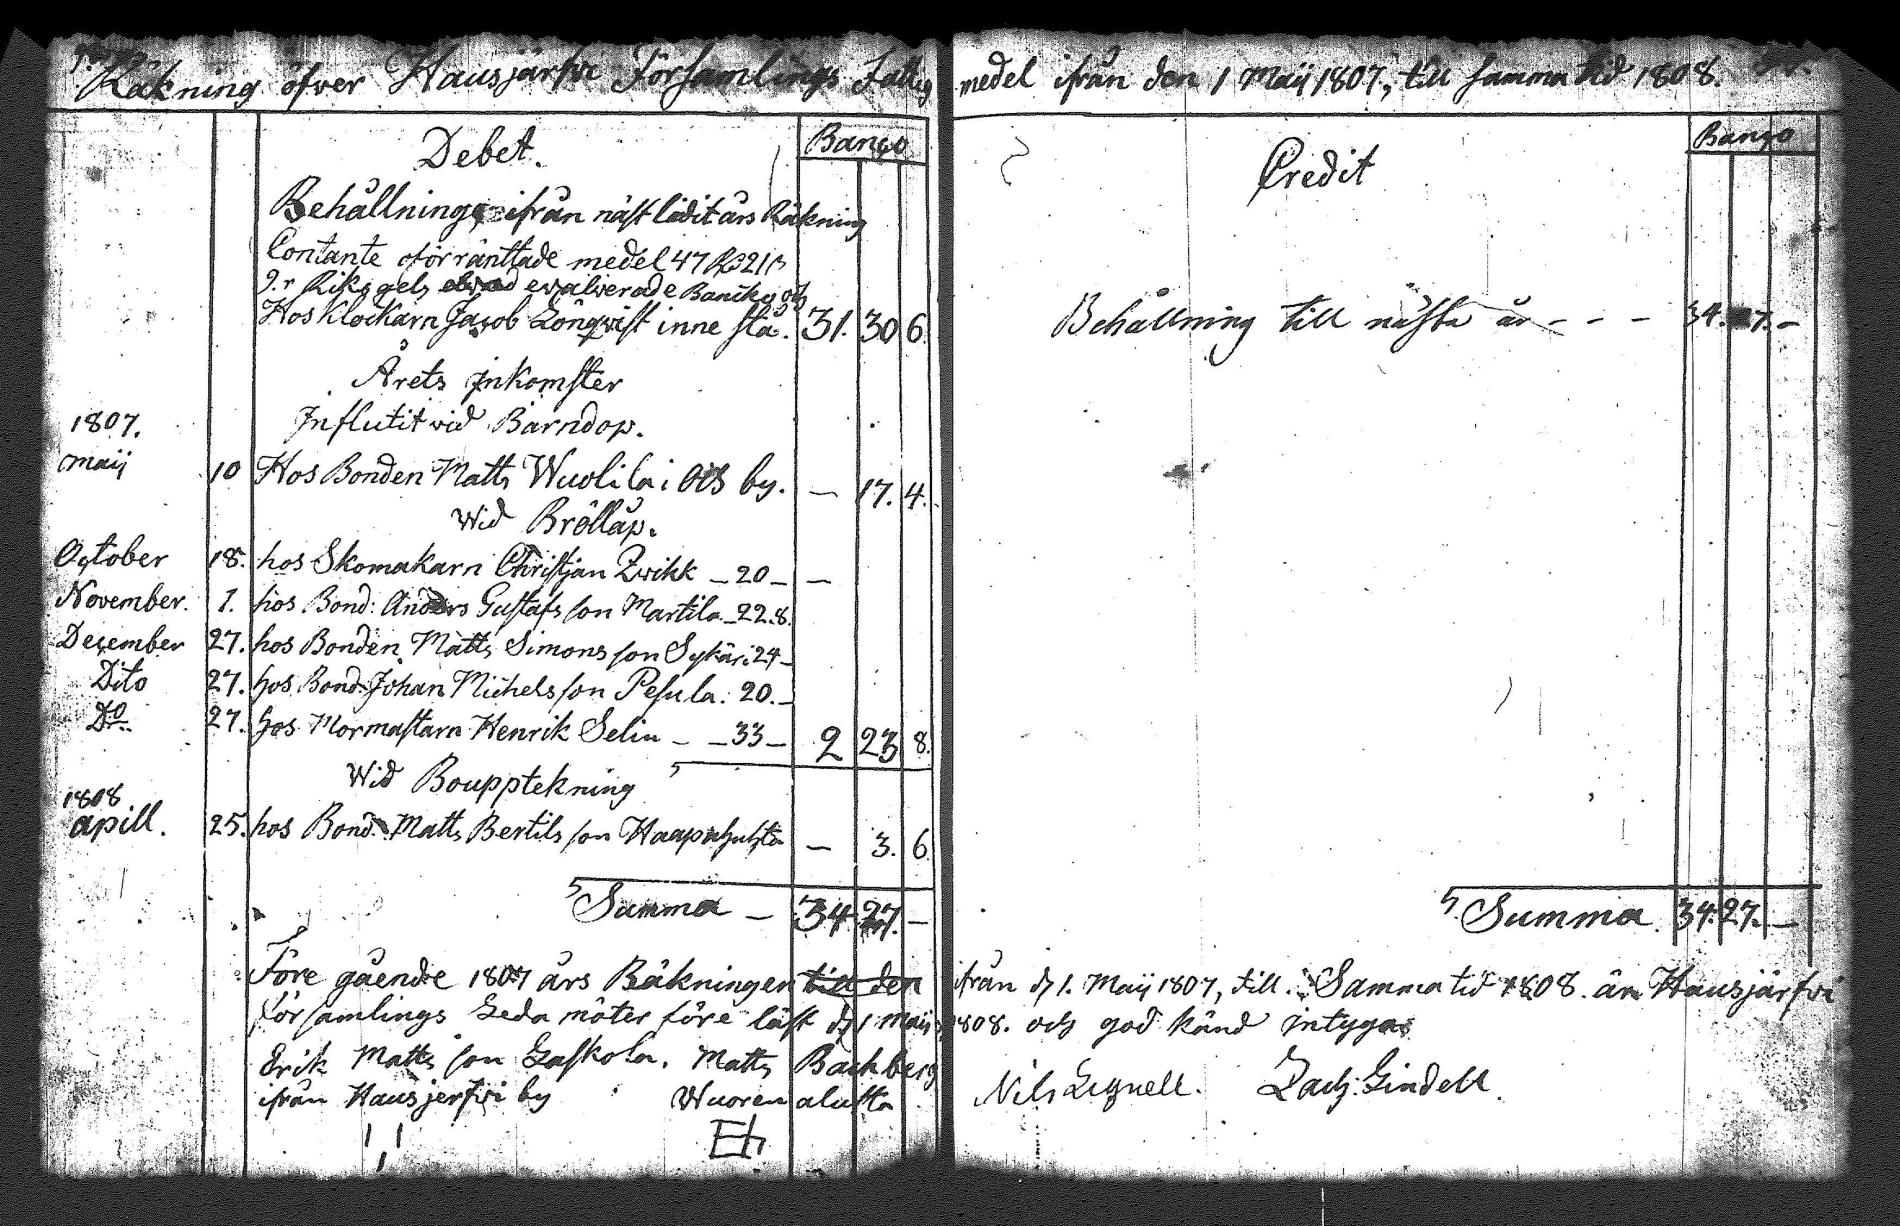 Räkning öfver Hausjärfvi Församlings Fattig medel ifrån den 1 Maij 1807, till samma tid 1808.
Debet.
Banço
Behållning ifrån näst ledit års Räkning
Contante oförränttade medel 47 R 21 ß
9.r Riksgels evalverade Banko och
Hos Klockarn Jacob Lönqvist inne stå. 31. 30 6.
Årets Inkomster
1807. Influtit vid Barndop.
Maij 10 Hos Bonden Matts Wuolila i Ois by. — 17. 4.
Wid Bröllåp.
October 18. hos Skomakarn Christjan Zwikk — 20 — —
November. 1. hos Bond: Anders Gustafs son Martila — 22. 8.
December 27. hos Bonden Matts Simons son Sykäri 24 —
Dito 27. hos Bond: Johan Michels son Pesula. 20. —
Do 27. hos Mormastarn Henrik Selin — — 33 — 2 23 8.
Wid Boupptekning
1808
apill. 25. hos Bond. Matts Bertils son Haapahuhta — 3. 6
Summa — 34 27. —
Credit
Banço
Behållning till nästa år - - - 34. 27. —
Summa 34. 27. —
Före gående 1807 års Räkningen till den ifrån d 1. Maij 1807, till Samma tid 1808. är Hausjärfvi
församlings Leda möter före läst d 1 Maij 1808. och god känd intygas
Erik Matts son Laskola. Matts Backberg Nils Lignell. Zach: Lindell.
ifrån Hausjerfvi by Wuorenalusta